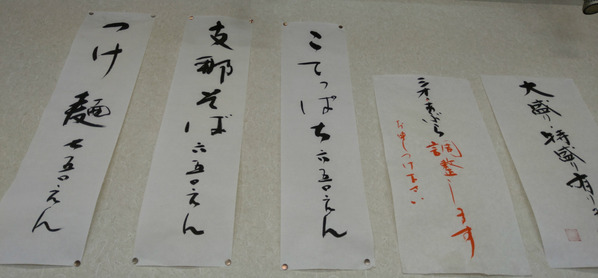 大盛り・特盛り有り
シオ・あぶら調整します
お申しつけ下さい
こてっぱち六五〇えん
支那そば六五〇えん
つけ麺七五〇えん